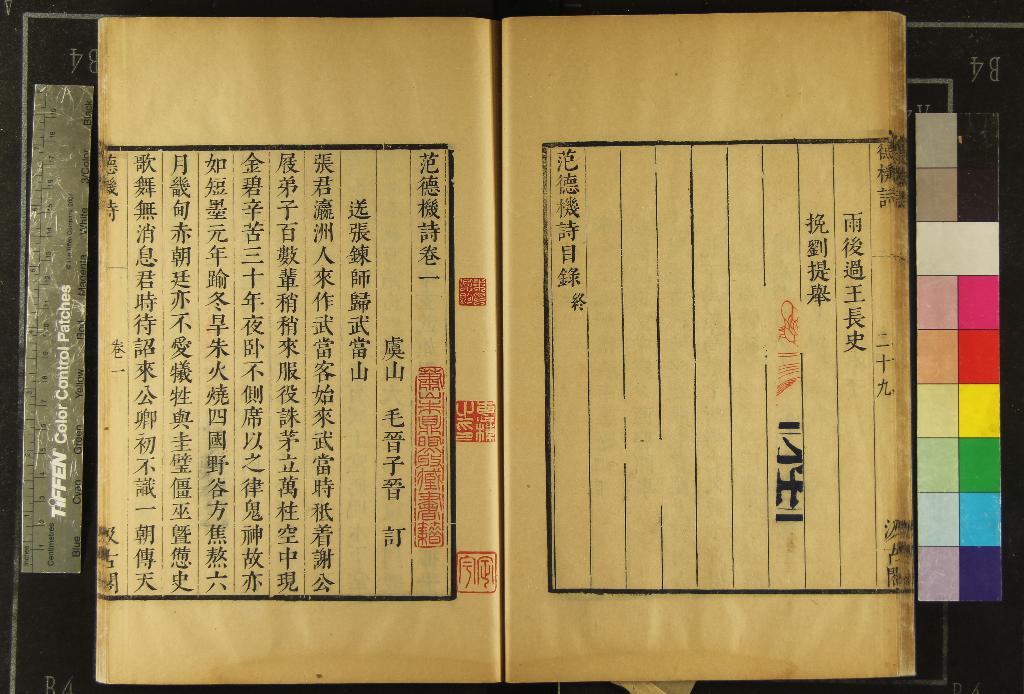 雨後過王長史
挽劉提舉
范德機詩目錄 終
二十九
范德機詩卷一
虞山 毛晉子晉 訂
送張鍊師歸武當山
張君瀛洲人來作武當客始來武當時祇着謝公
屐弟子百數輩稍稍來服役誅茅立萬柱空中現
金碧辛苦三十年夜卧不側席以之律鬼神故亦
如短墨元年踰冬旱朱火燒四國野谷方焦熬六
月畿甸赤朝廷亦不愛犧牲與圭璧僵巫曁愆史
歌舞無消息君時待詔來公卿初不識一朝傳天
卷一
TIFFEN Color Control Patches
Centimetres
Blue
Cyan
Green
Yellow
Red
Magenta
White
3/Color
Black
B4
B4